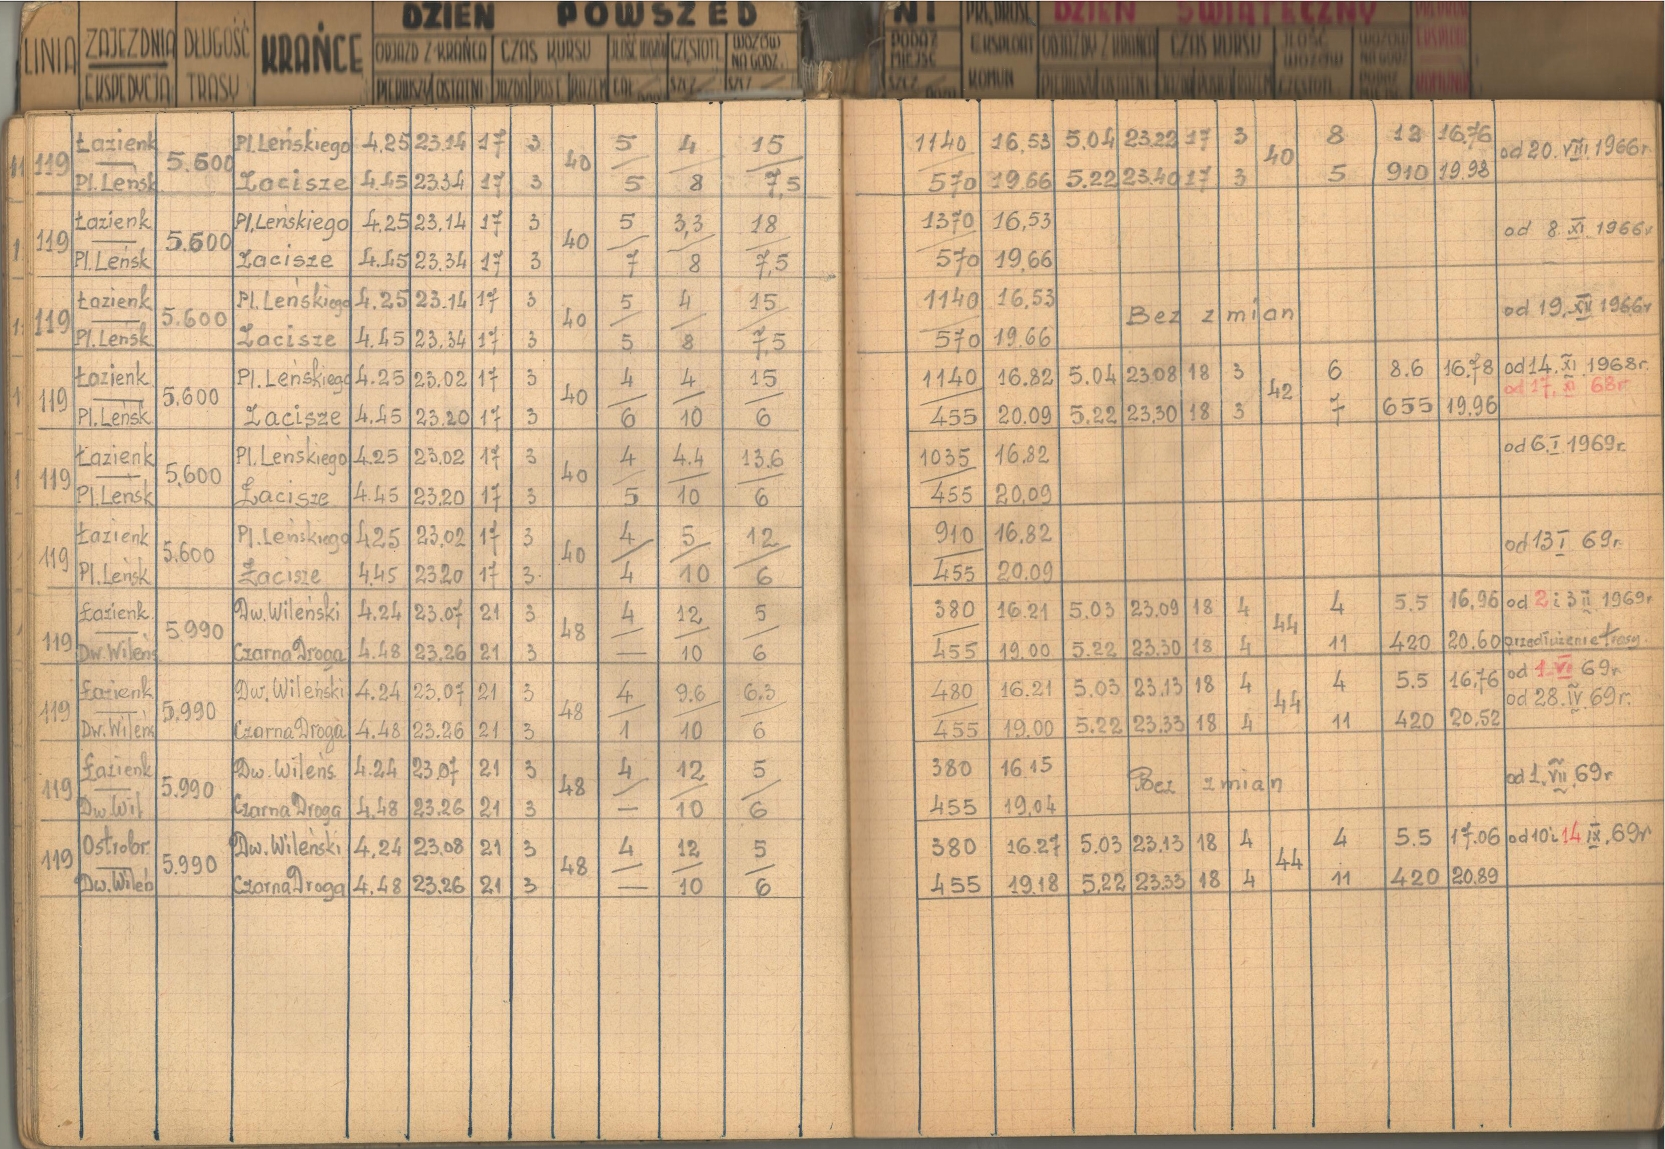 DZIEŃ POWSZED NI DZIEŃ ŚWIĄTECZNY
LINIA ZAJEZDNIA DŁUGOŚĆ KRAŃCE ODJAZD Z KRAŃCA CZAS KURSU CZĘSTOTL WOZÓW NA GODZ. PODAŻ MIEJSC EKSPLOAT ODJAZDY Z KRAŃCA CZAS KURSU ILOŚĆ WOZÓW
EKSPEDYCJA TRASY PIERWSZY OSTATNI JAZDA POST. RAZEM SZCZ SZCZ SZCZ KOMUN PIERWSZY OSTATNI
119 Łazienk 5.600 Pl.Leńskiego 4.25 23.14 17 3 40 5 4 15 1140 16,53 5.04 23.22 17 3 40 8 12 16,76 od 20. VIII. 1966r.
Pl.Leńsk Zacisze 4.45 23.34 17 3 5 8 7,5 570 19,66 5.22 23.40 17 3 5 910 19,98
119 Łazienk 5.600 Pl.Leńskiego 4.25 23,14 17 3 40 5 3,3 18 1370 16,53 od 8. XI. 1966r
Pl.Leńsk Zacisze 4.45 23.34 17 3 7 8 7,5 570 19,66
119 Łazienk 5.600 Pl.Leńskiego 4.25 23.14 17 3 40 5 4 15 1140 16,53 Bez zmian od 19. XII 1966r
Pl.Leńsk Zacisze 4.45 23.34 17 3 5 8 7,5 570 19.66
119 Łazienk 5.600 Pl.Leńskiego 4.25 23.02 17 3 40 4 4 15 1140 16.82 5.04 23.08 18 3 42 6 8.6 16,78 od 14. XI. 1968r.
od 17. XI 68r.
Pl.Leńsk Zacisze 4.45 23.20 17 3 6 10 6 455 20.09 5.22 23,30 18 3 7 655 19,96
119 Łazienk 5,600 Pl.Leńskiego 4.25 23.02 17 3 40 4 4.4 13.6 1035 16,82 od 6.I. 1969r.
Pl.Leńsk Zacisze 4.45 23.20 17 3 5 10 6 455 20,09
119 Łazienk 5.600 Pl.Leńskiego 4.25 23,02 17 3 40 4 5 12 910 16.82 od 13 I 69r.
Pl.Leńsk Zacisze 4.45 23.20 17 3 4 10 6 455 20.09
119 Łazienk. 5.990 Dw.Wileński 4.24 23.07 21 3 48 4 12 5 380 16.21 5.03 23.09 18 4 44 4 5.5 16,96 od 2 i 3 II 1969r
Dw.Wileńs Czarna Droga 4.48 23.26 21 3 — 10 6 455 19.00 5.22 23.30 18 4 11 420 20.60 przedłużenie trasy.
119 Łazienk 5.990 Dw.Wileński 4.24 23.07 21 3 48 4 9.6 6.3 480 16.21 5.03 23.13 18 4 44 4 5.5 16,76 od 1. VI 69r.
od 28. IV. 69r.
Dw.Wileńs Czarna Droga 4.48 23.26 21 3 1 10 6 455 19.00 5.22 23.33 18 4 11 420 20,52
119 Łazienk 5.990 Dw.Wileńs 4.24 23,07 21 3 48 4 12 5 380 16.15 Bez zmian od 1. VII. 69r
Dw.Wil Czarna Droga 4.48 23.26 21 3 — 10 6 455 19,04
119 Ostrobr. 5.990 Dw.Wileński 4.24 23.08 21 3 48 4 12 5 380 16.27 5.03 23.13 18 4 44 4 5.5 17.06 od 10 i 14 IX. 69r
Dw.Wileń Czarna Droga 4.48 23.26 21 3 — 10 6 455 19.18 5.22 23.33 18 4 11 420 20.89